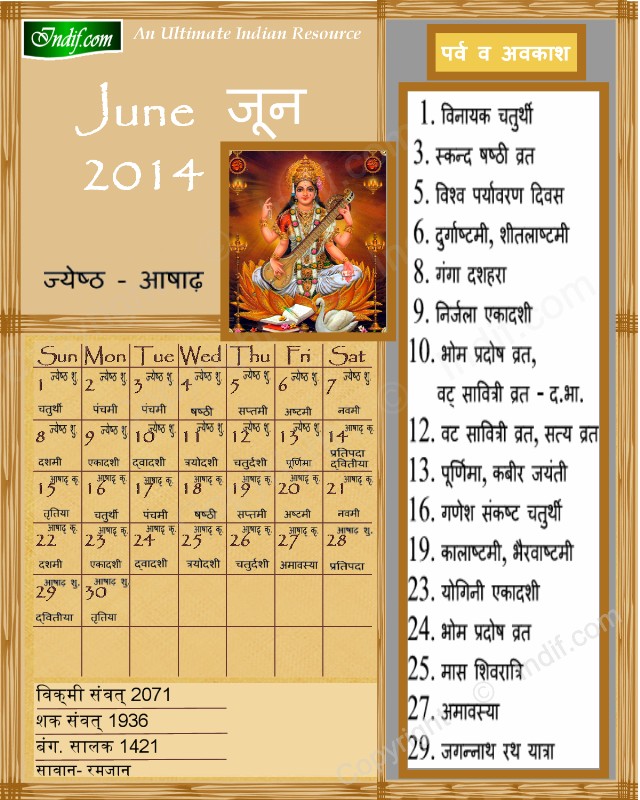 Indif.com
An Ultimate Indian Resource
June जून
2014
ज्येष्ठ - आषाढ़
Sun Mon Tue Wed Thu Fri Sat
1 ज्येष्ठ शु. 2 ज्येष्ठ शु. 3 ज्येष्ठ शु. 4 ज्येष्ठ शु. 5 ज्येष्ठ शु. 6 ज्येष्ठ शु. 7 ज्येष्ठ शु.
चतुर्थी पंचमी पंचमी षष्ठी सप्तमी अष्टमी नवमी
8 ज्येष्ठ शु. 9 ज्येष्ठ शु. 10 ज्येष्ठ शु. 11 ज्येष्ठ शु. 12 ज्येष्ठ शु. 13 ज्येष्ठ शु. 14 आषाढ़ कृ.
दशमी एकादशी द्वादशी त्रयोदशी चतुर्दशी पूर्णिमा प्रतिपदा द्वितीया
15 आषाढ़ कृ. 16 आषाढ़ कृ. 17 आषाढ़ कृ. 18 आषाढ़ कृ. 19 आषाढ़ कृ. 20 आषाढ़ कृ. 21 आषाढ़ कृ.
तृतिया चतुर्थी पंचमी षष्ठी सप्तमी अष्टमी नवमी
22 आषाढ़ कृ. 23 आषाढ़ कृ. 24 आषाढ़ कृ. 25 आषाढ़ कृ. 26 आषाढ़ कृ. 27 आषाढ़ कृ. 28 आषाढ़ शु.
दशमी एकादशी द्वादशी त्रयोदशी चतुर्दशी अमावस्या प्रतिपदा
29 आषाढ़ शु. 30 आषाढ़ शु.
द्वितीया तृतिया
विक्रमी संवत् 2071
शक संवत् 1936
बंग. सालक 1421
सावान- रमजान
पर्व व अवकाश
1. विनायक चतुर्थी
3. स्कन्द षष्ठी व्रत
5. विश्व पर्यावरण दिवस
6. दुर्गाष्टमी, शीतलाष्टमी
8. गंगा दशहरा
9. निर्जला एकादशी
10. भोम प्रदोष व्रत,
वट् सावित्री व्रत - द.भा.
12. वट सावित्री व्रत, सत्य व्रत
13. पूर्णिमा, कबीर जयंती
16. गणेश संकष्ट चतुर्थी
19. कालाष्टमी, भैरवाष्टमी
23. योगिनी एकादशी
24. भोम प्रदोष व्रत
25. मास शिवरात्रि
27. अमावस्या
29. जगन्नाथ रथ यात्रा
Copyright © Indif.com